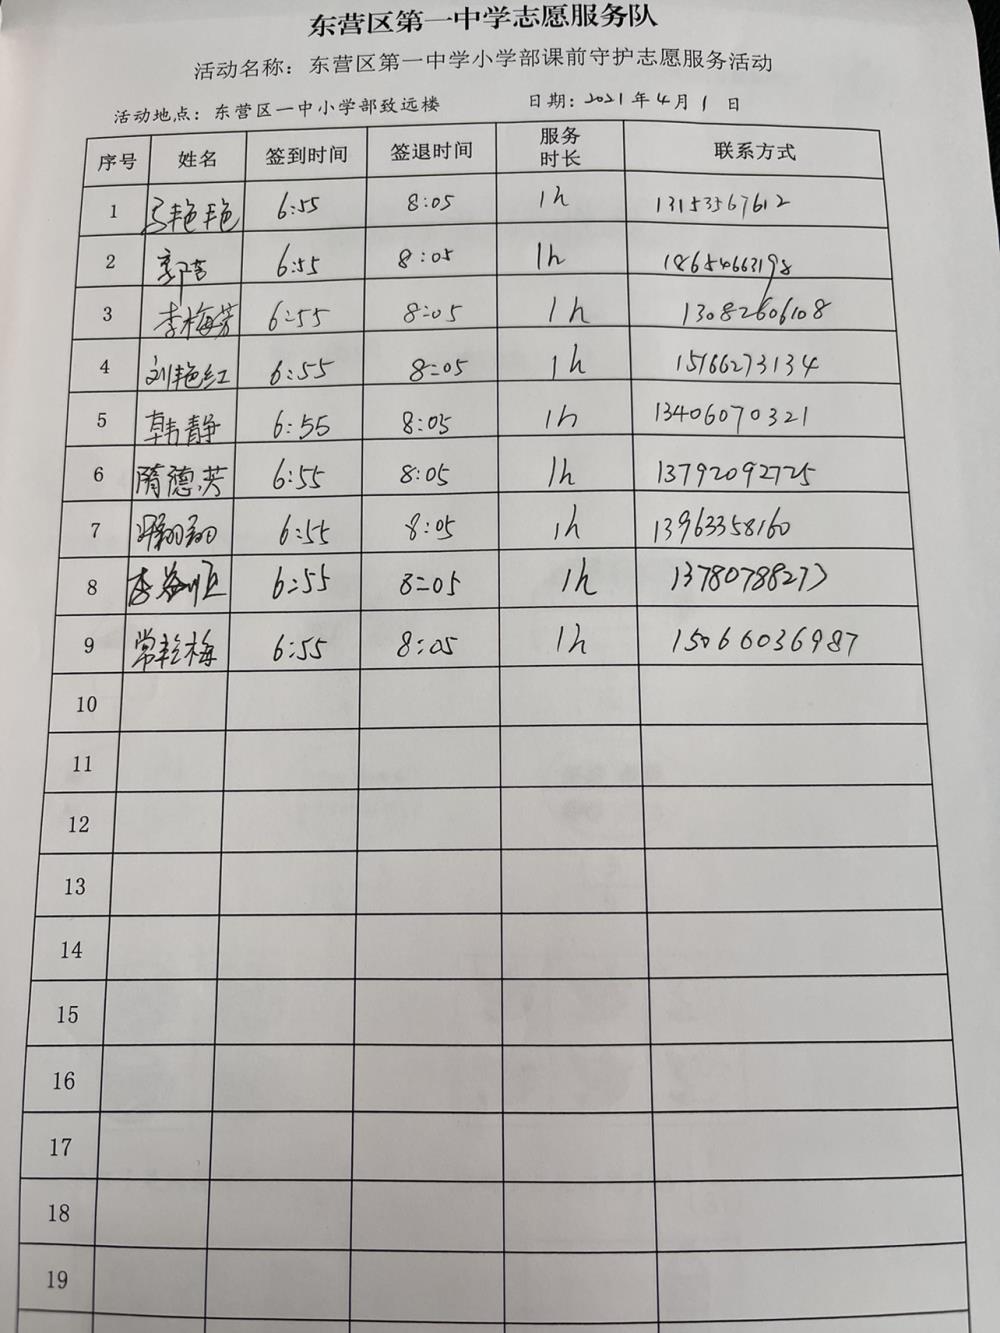 东营区第一中学志愿服务队
活动名称：东营区第一中学小学部课前守护志愿服务活动
活动地点：东营区一中小学部致远楼 日期：2021年4月1日
序号 姓名 签到时间 签退时间 服务时长 联系方式
1 马艳艳 6:55 8:05 1h 13153567612
2 6:55 8:05 1h 18654663198
3 李梅芳 6:55 8:05 1h 13082606108
4 刘艳红 6:55 8:05 1h 15166273134
5 韩静 6:55 8:05 1h 13406070321
6 隋德芳 6:55 8:05 1h 13792092725
7 6:55 8:05 1h 13963358160
8 6:55 8:05 1h 13780788273
9 常彩梅 6:55 8:05 1h 15066036987
10
11
12
13
14
15
16
17
18
19